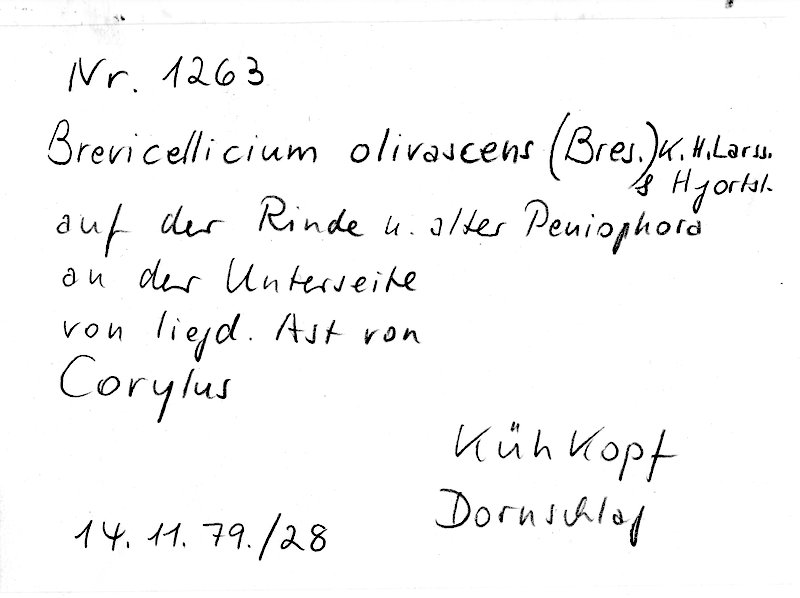 Nr. 1263
Brevicellicium olivascens (Bres.) K. H. Larss.
& Hjortst.
auf der Rinde u. alter Peniophora
an der Unterseite
von liegd. Ast von
Corylus
Kühkopf
Dornschlag
14. 11. 79./28